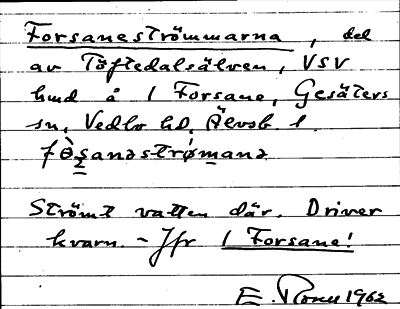 Forsaneströmmarna, del
av Töftedalsälven, VSV
hmd å 1 Forsane, Gesäters
sn, Vedbo hd, Älvsb. l.
fɷ̀ṣanəstrømanə
Strömt vatten där. Driver
kvarn. - Jfr 1 Forsane!
E. 1962